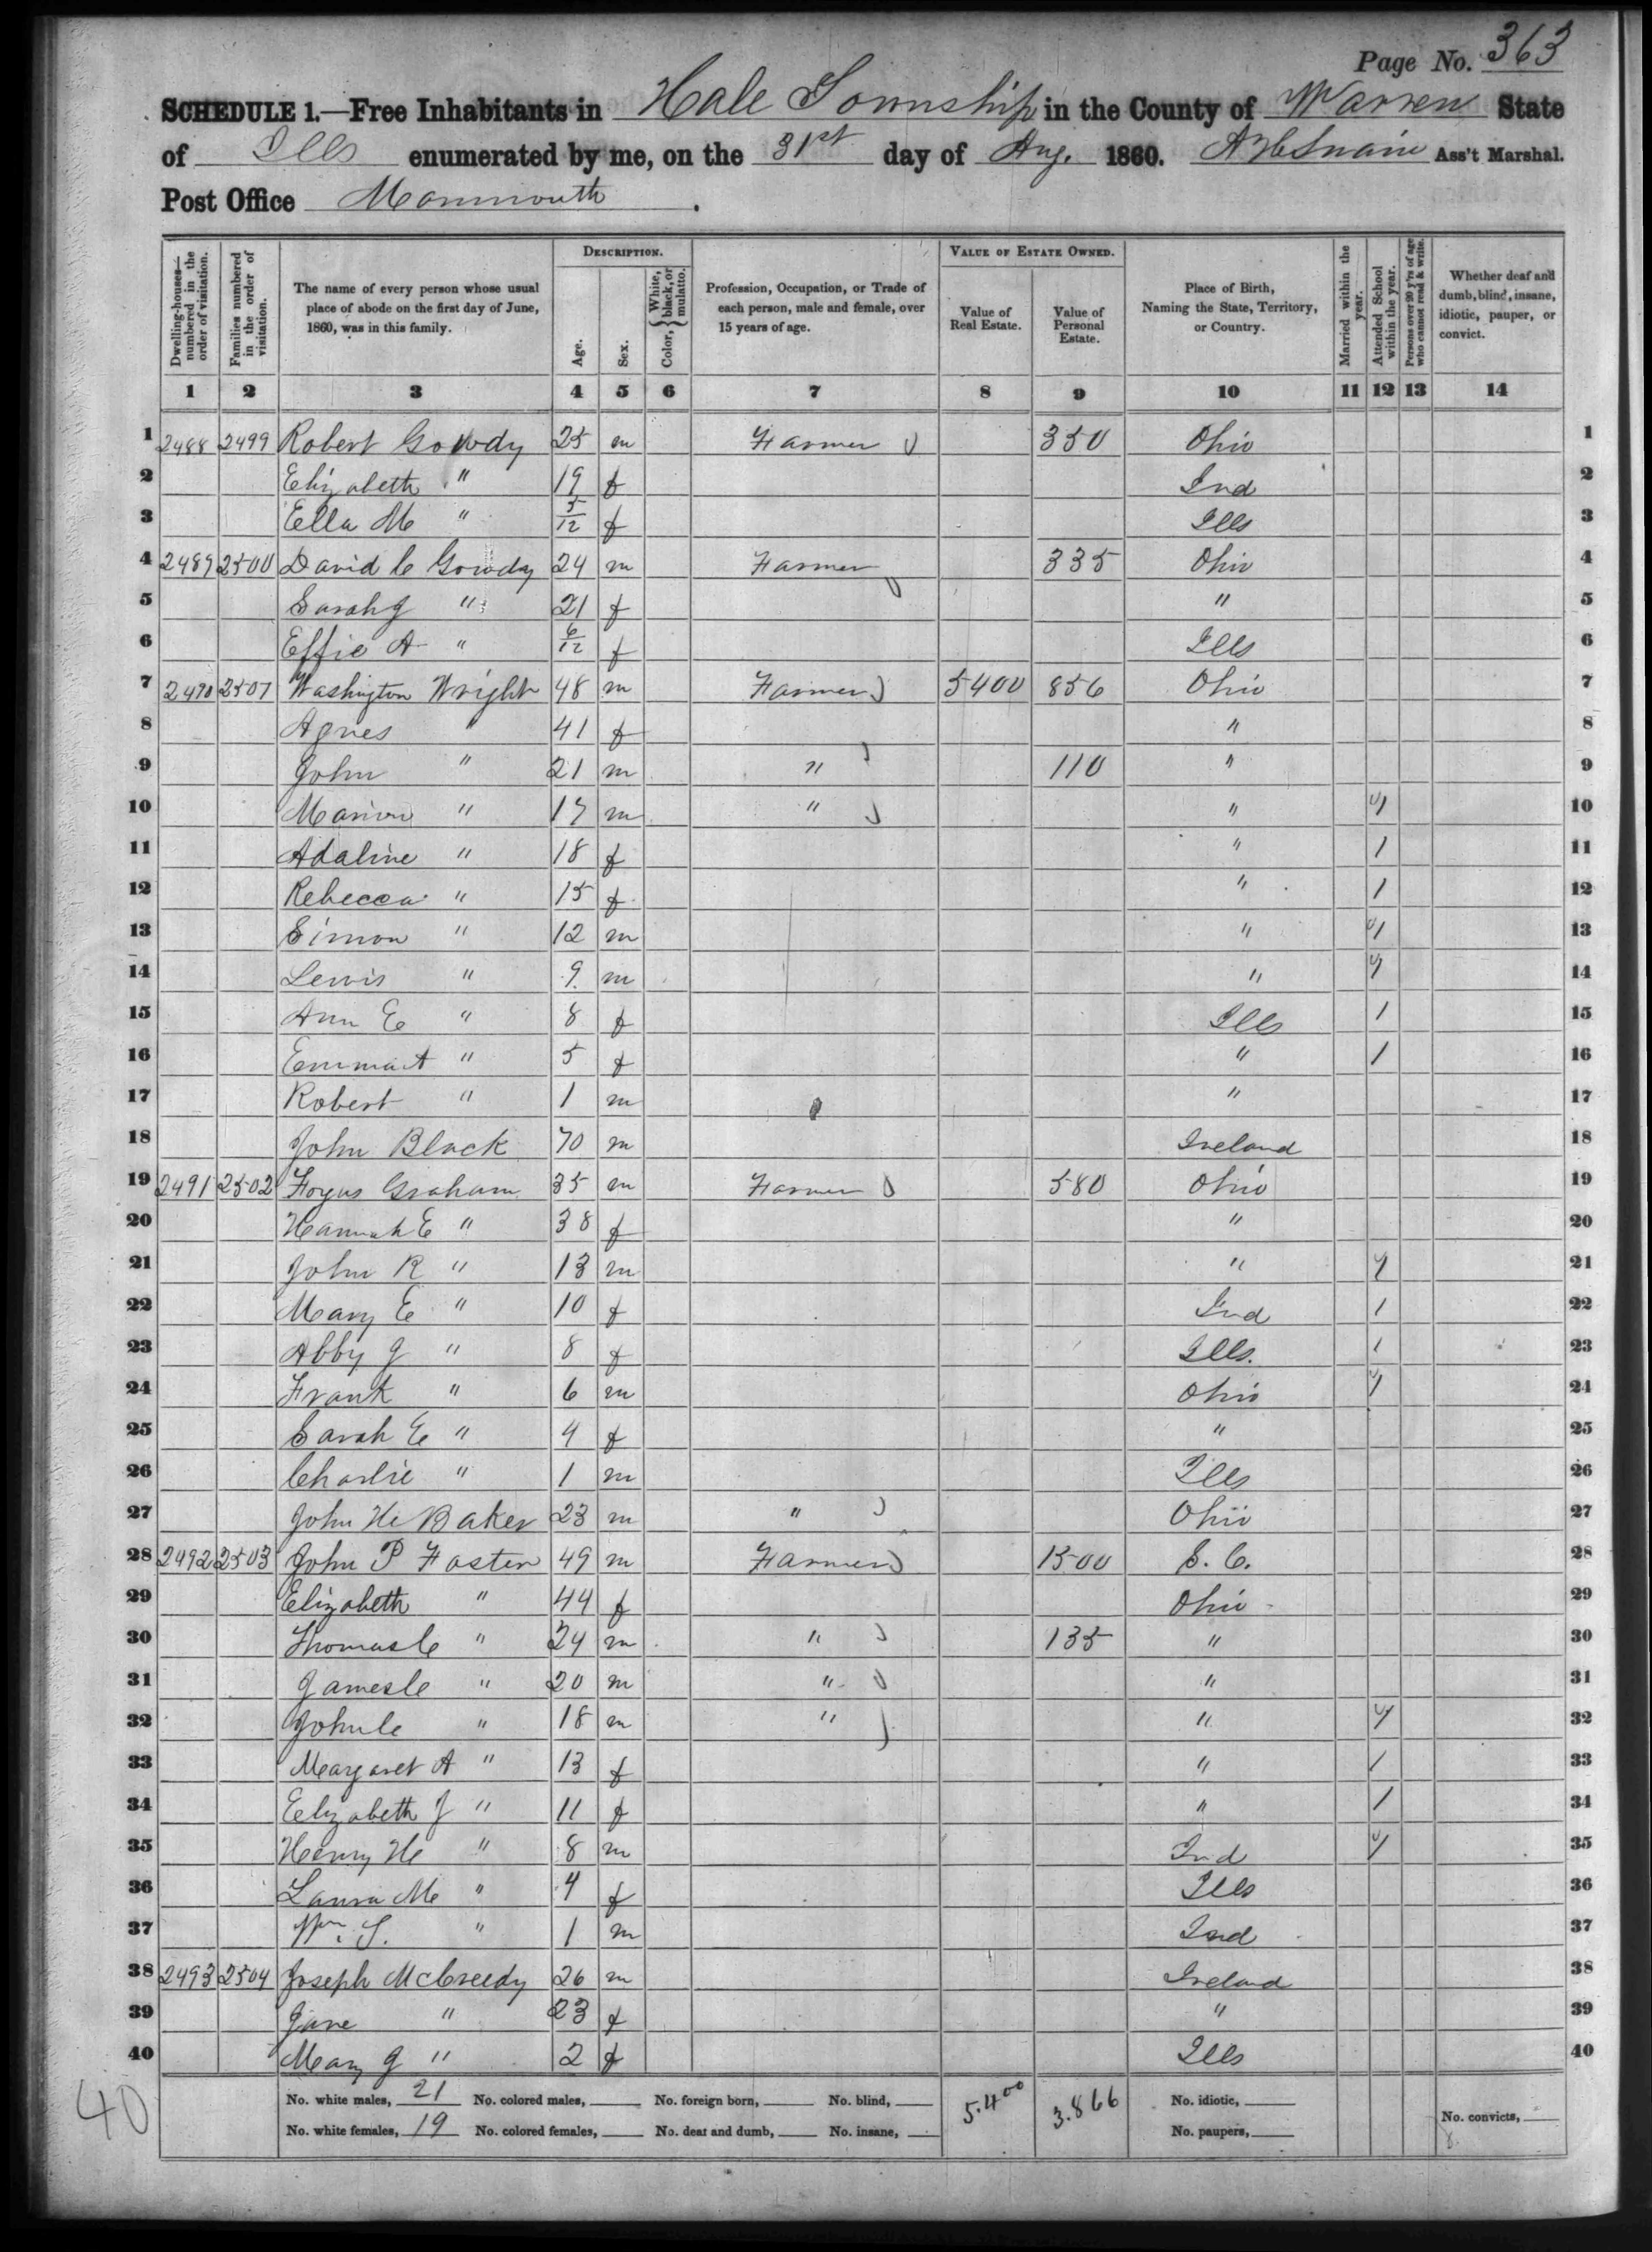 Page No. 363
SCHEDULE 1.—Free Inhabitants in Hale Township in the County of Warren State
of Ills enumerated by me, on the 31st day of Aug. 1860. Ass't Marshal.
Post Office Monmouth.
Dwelling-houses—numbered in the order of visitation. Families numbered in the order of visitation. The name of every person whose usual place of abode on the first day of June, 1860, was in this family. DESCRIPTION. Age. Sex. Color, { White, black, or mulatto. Profession, Occupation, or Trade of each person, male and female, over 15 years of age. VALUE OF ESTATE OWNED. Value of Real Estate. Value of Personal Estate. Place of Birth, Naming the State, Territory, or Country. Married within the year. Attended School within the year. Persons over 20 y'rs of age who cannot read & write. Whether deaf and dumb, blind, insane, idiotic, pauper, or convict.
1 2 3 4 5 6 7 8 9 10 11 12 13 14
1 2488 2499 Robert Gowdy 25 m Farmer 350 Ohio 1
2 Elizabeth " 19 f Ind 2
3 Ella M " 5/12 f Ills 3
4 2489 2500 David C Gowdy 24 m Farmer 335 Ohio 4
5 Sarah J " 21 f " 5
6 Effie A " 6/12 f Ills 6
7 2490 2501 Washington Wright 48 m Farmer 5400 856 Ohio 7
8 Agnes " 41 f " 8
9 John " 21 m " 110 " 9
10 Marion " 17 m " " 1 10
11 Adaline " 18 f " 1 11
12 Rebecca " 15 f " 1 12
13 Simon " 12 m " 1 13
14 Lewis " 9 m " 1 14
15 Ann E " 8 f Ills 1 15
16 Emma A " 5 f " 1 16
17 Robert " 1 m " 17
18 John Black 70 m Ireland 18
19 2491 2502 Graham 35 m Farmer 580 Ohio 19
20 Hannah E " 38 f " 20
21 John R " 13 m " 1 21
22 Mary E " 10 f Ind 1 22
23 Abby J " 8 f Ills. 1 23
24 Frank " 6 m Ohio 1 24
25 Sarah E " 4 f " 25
26 Charlie " 1 m Ills 26
27 John H Baker 23 m " Ohio 27
28 2492 2503 John P Foster 49 m Farmer 1500 S. C. 28
29 Elizabeth " 44 f Ohio 29
30 Thomas C " 24 m " 135 " 30
31 James C " 20 m " " 31
32 John C " 18 m " " 1 32
33 Margaret A " 13 f " 1 33
34 Elizabeth J " 11 f " 1 34
35 Henry H " 8 m Ind 1 35
36 Laura M " 4 f Ills 36
37 Wm. S. " 1 m Ind 37
38 2493 2504 Joseph McCreedy 26 m Ireland 38
39 Jane " 23 f " 39
40 Mary J " 2 f Ills 40
40 No. white males, 21 No. colored males, No. foreign born, No. blind, 5.400 3.866 No. idiotic, No. convicts,
No. white females, 19 No. colored females, No. deaf and dumb, No. insane, No. paupers,